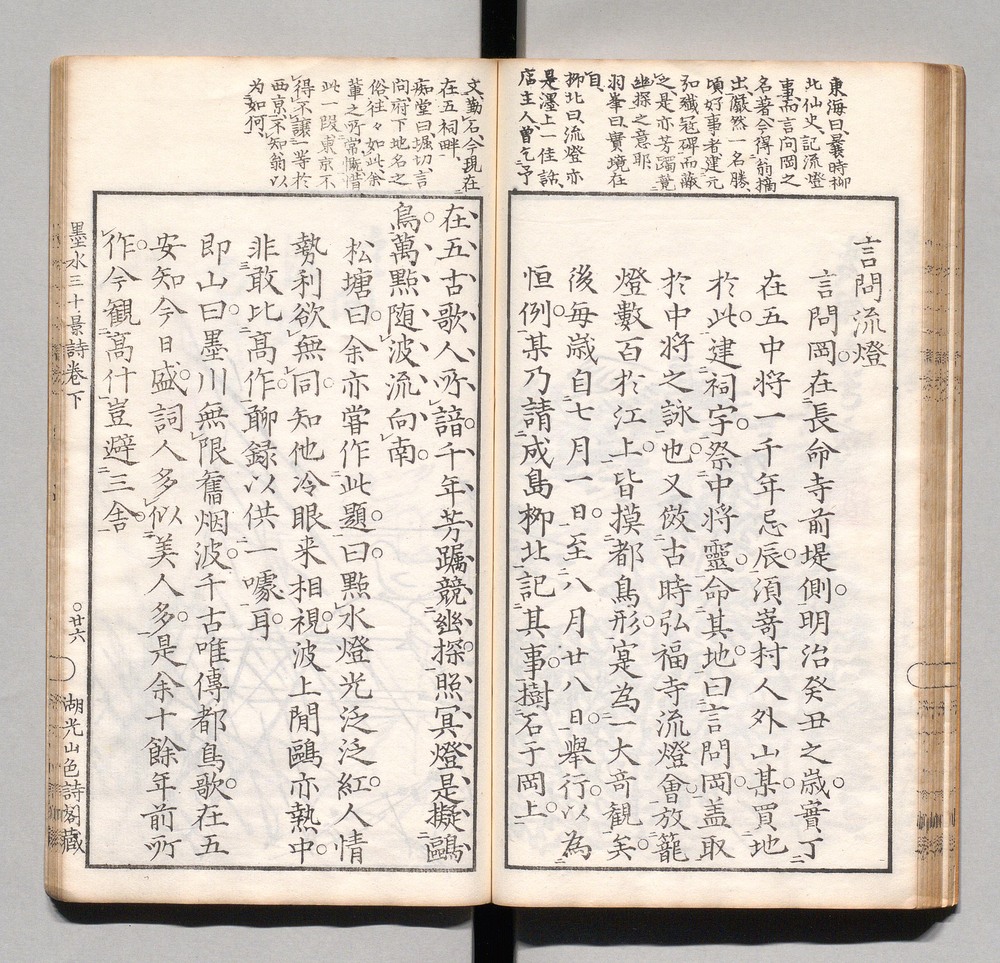 東海曰、曩時柳
北仙史、記流燈
事、而言問岡之
名著、今得翁摛
出、儼然一名勝、
頃好事者建元
弘殲冠碑、而蔽
之、是亦芳躅覓
幽探之意耶、
羽峯曰、實境在
目、
柳北曰、流燈亦
是濹上一佳話、
店主人、曾乞予
言問流燈
言問岡。在長命寺前堤側。明治癸丑之歲。實丁
在五中將一千年忌辰。須嵜村人外山某。買地
於此。建祠宇。祭中將靈。命其地。曰言問岡。盖取
於中將之詠也。又倣古時弘福寺流燈會。放籠
燈數百於江上。皆摸都鳥形。寔為一大竒観矣。
後每歲自七月一日。至八月廿八日。舉行。以為
恒例。某乃請成島柳北記其事。樹石于岡上。
文勒石、今現在
在五祠畔、
痴堂曰、堀切、言
問、府下地名之
俗、往々如此、余
輩之所常慨惜、
此一段、東京不
得不讓一等於
西京、不知翁以
为如何、
在五古歌人所諳。千年芳躅競幽探。照冥燈是擬鷗
鳥。萬點随波流向南。
松塘曰。余亦嘗作此題。曰。點水燈光泛泛紅。人情
勢利欲無同。知他冷眼来相視。波上閒鷗亦熱中。
非敢比髙作。聊録以供一噱耳。
即山曰。墨川無限舊烟波。千古唯傳都鳥歌。在五
安知今日盛。詞人多似美人多。是余十餘年前所
作。今観髙什。豈避三舎。
墨水三十景詩卷下
○廿六
湖光山色詩閣藏